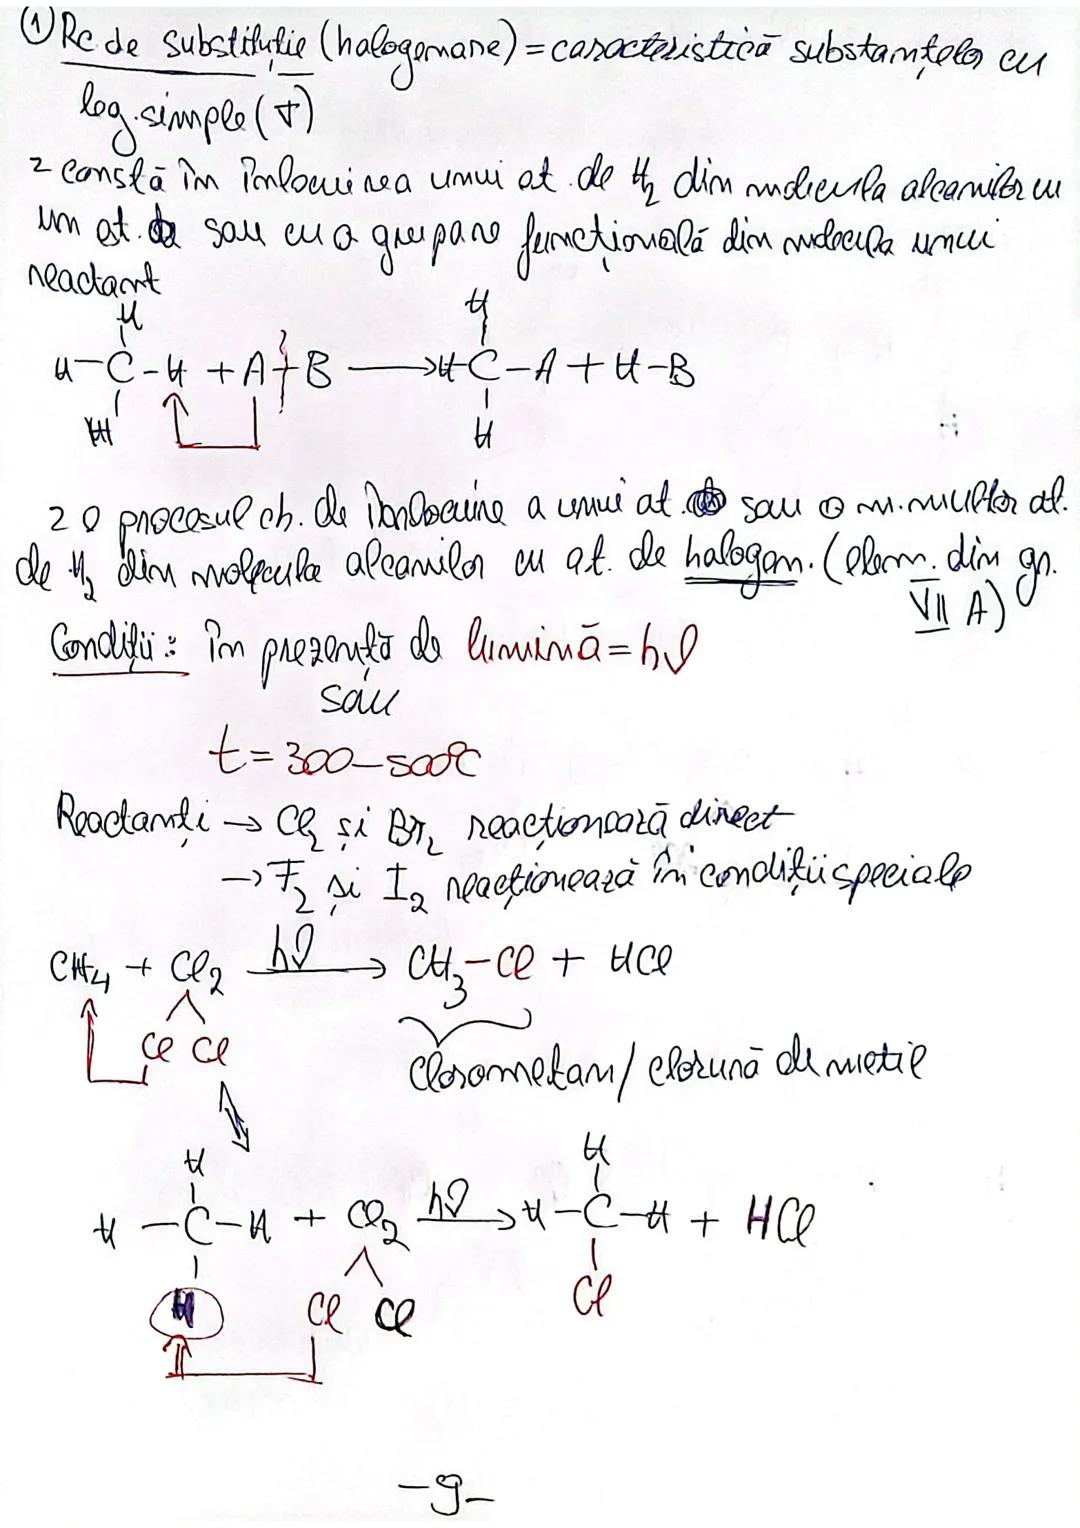 ① Rc. de substituție (halogenare) = caracteristică substanțelor cu
leg. simple (σ)
2 constă în înlocuirea unui at. de H₂ din molecula alcanilor cu
un at. sau cu o grupare funcțională din molecula unui
reactant
H H
H-C-H + A-B ⟶ H-C-A + H-B
H H
2 procesul ch. de înlocuire a unui at. sau a m. multor at.
de H₂ din molecula alcanilor cu at. de halogen. (elem. din gr.
VII A)
Condiții: în prezență de lumină = hν
sau
t = 300-500°C
Reactanți → Cl₂ și Br₂ reacționează direct
→ F₂ și I₂ reacționează în condiții speciale
CH₄ + Cl₂ hν⟶ CH₃-Cl + HCl
Cl Cl
Clorometan / clorură de metil
H H
H-C-H + Cl₂ hν⟶ H-C-H + HCl
H Cl Cl Cl
-9-